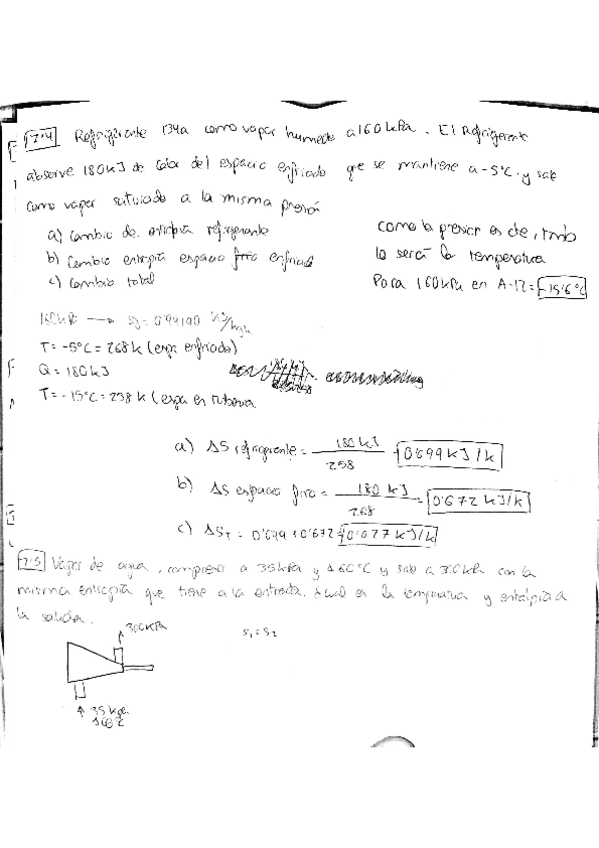 7.4 Refrigerante 134a como vapor humedo a 160 kPa. El Refrigerente
absorve 180 kJ de calor del espacio enfriado que se mantiene a -5°C. y sale
como vapor saturado a la misma presión
a) Cambio de entropia refrigerante
b) Cambio entropia espacio frio enfriado
c) Cambio total
como la presion es cte, tmb
lo será la temperatura
Para 160kPa en A-12 = -15'6°C
160kPa → Sg = 0'94190 kJ/kgk
T = -5°C = 268 k (espa enfriado)
Q = 180 kJ
T = -15°C = 258 k (espa en tuberia
a) ΔS refrigerante = 180 kJ / 258 = 0'699 kJ/k
b) ΔS espacio frio = 180 kJ / 268 = 0'672 kJ/k
c) ΔSt = 0'699 + 0'672 = 0'027 kJ/k
7.5 Vapor de agua, compresor a 35 kPa y 160°C y sale a 300 kPa con la
misma entropia que tiene a la entrada. cual es la temperatura y entalpia a
la salida.
300 kPa
S1 = S2
35 kPa
160°C